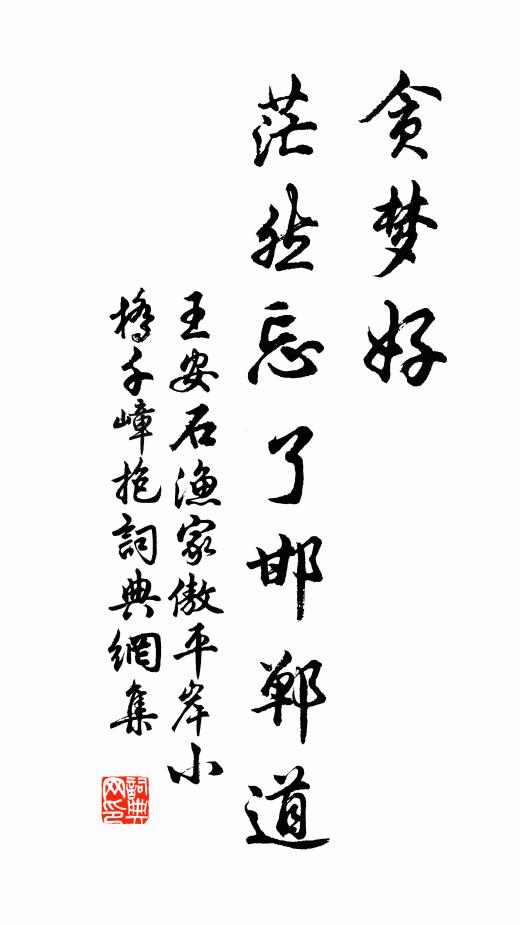 贪梦好
茫然忘了邯郸道
王安石渔家傲平岸小
桥千嶂抱詞典網集
詞典
网印